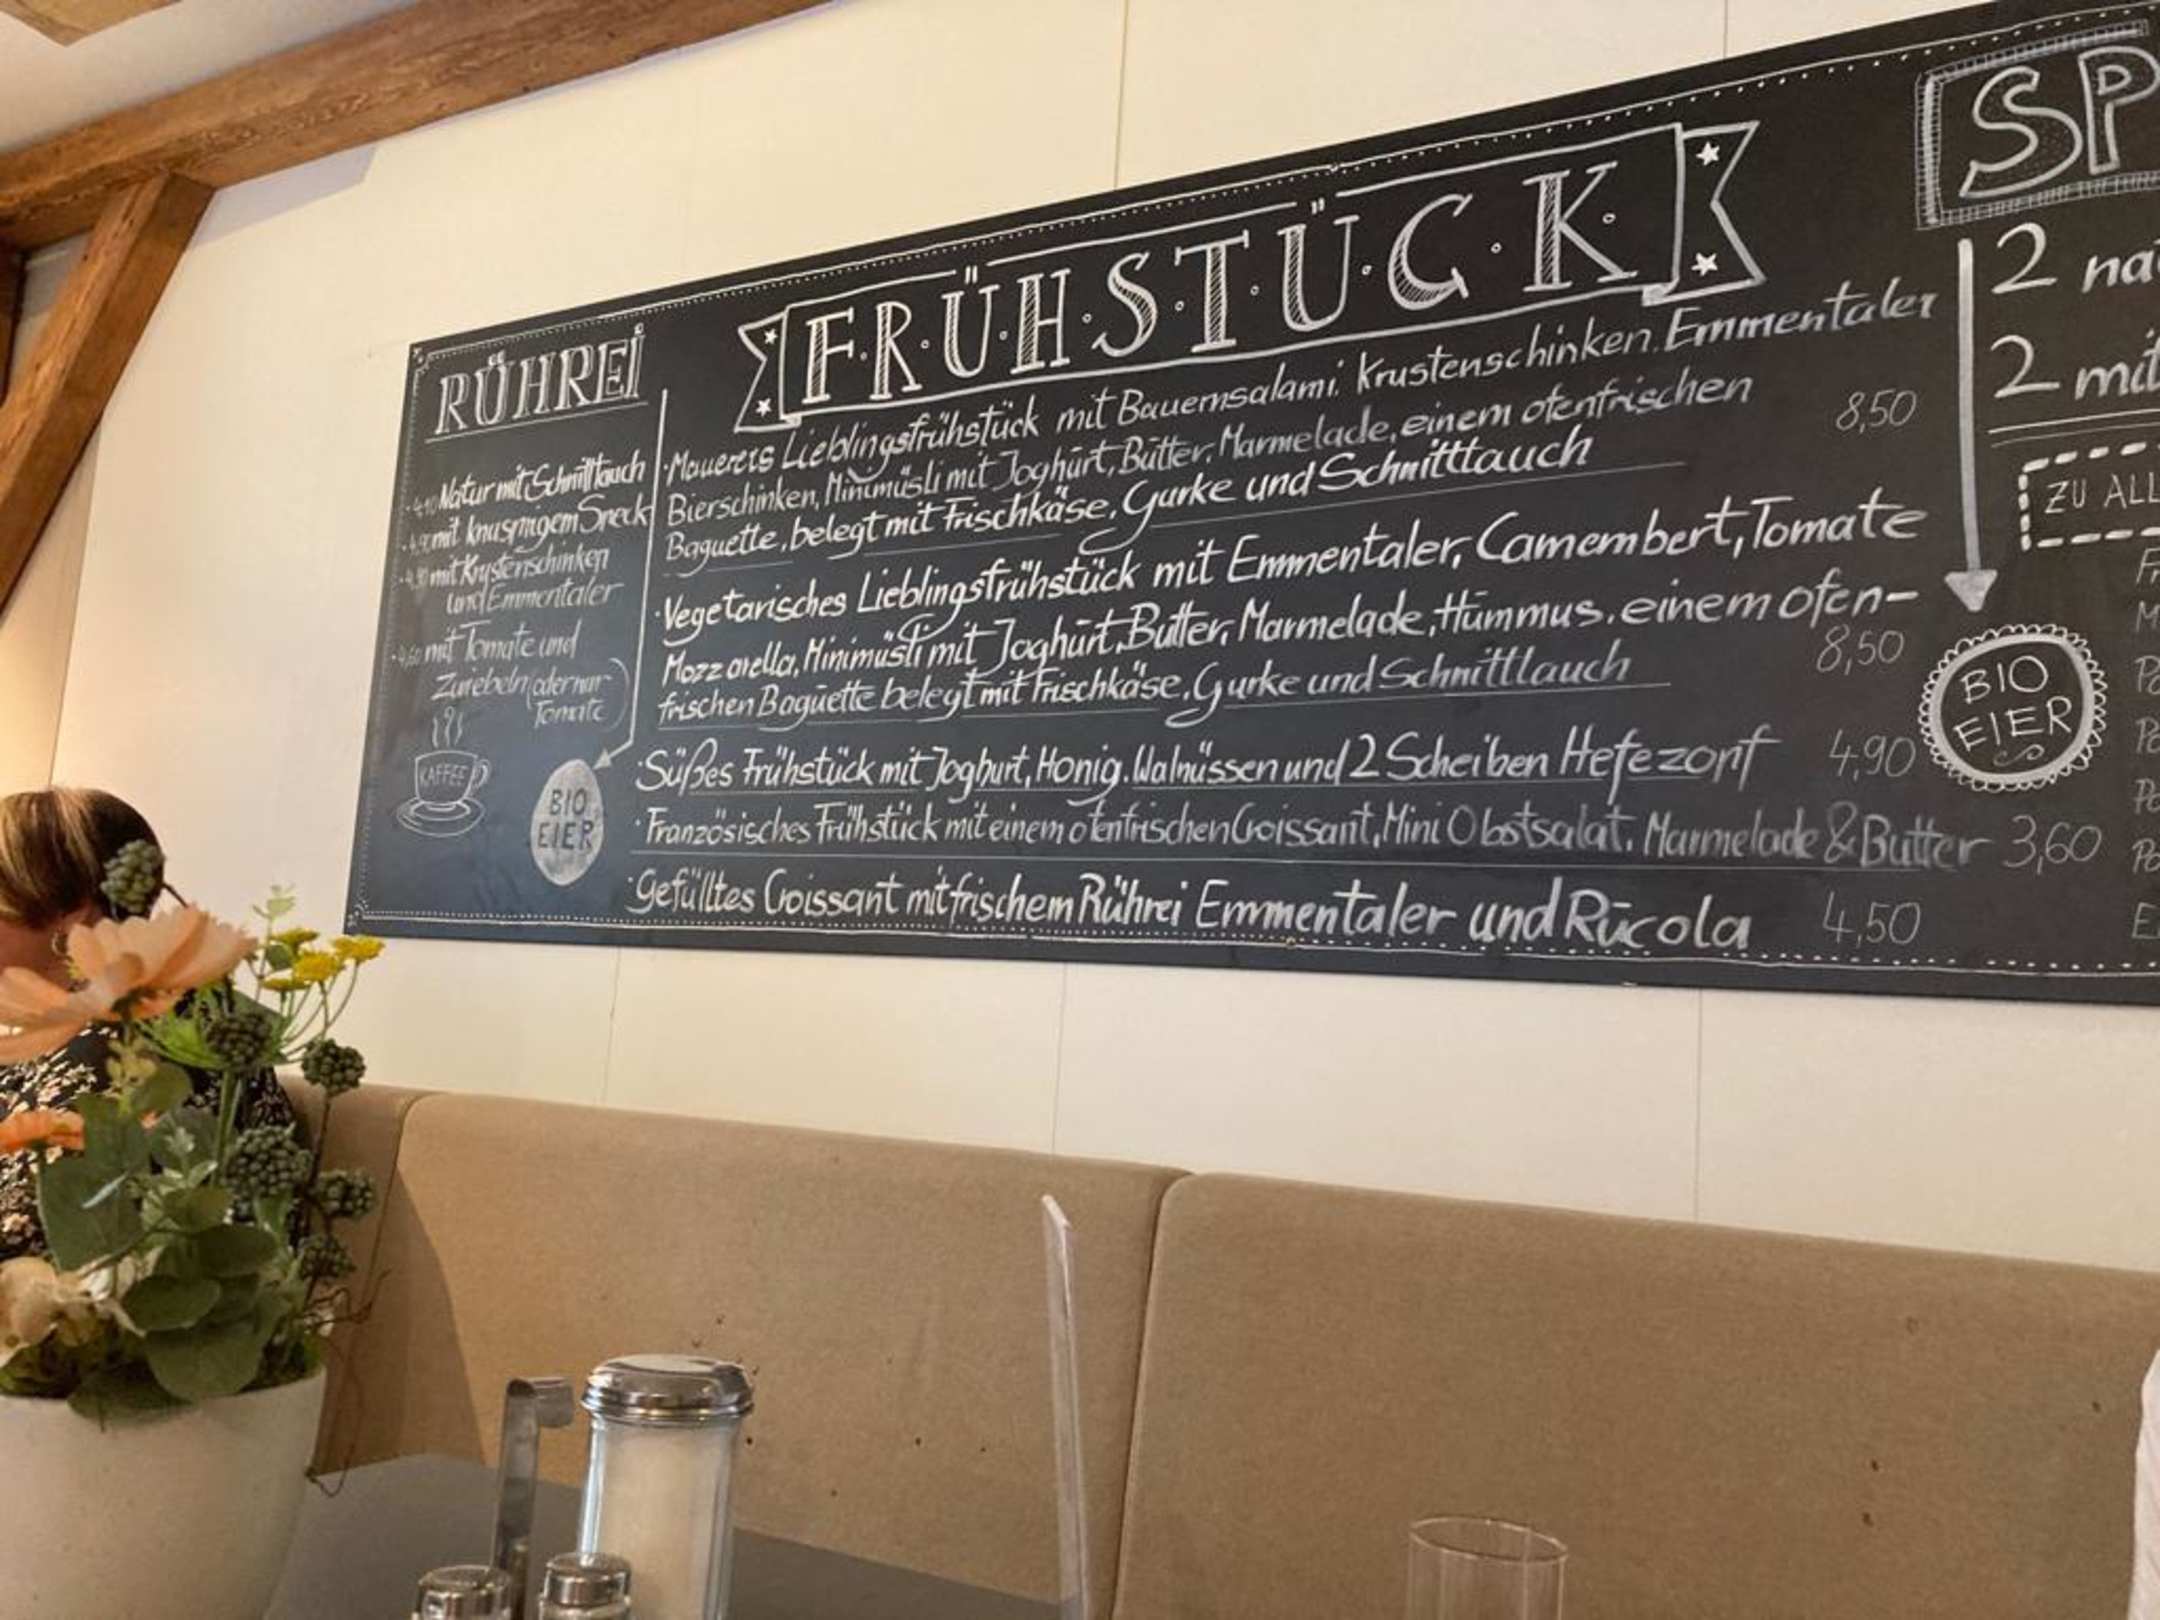 RÜHREI
· 4,10 Natur mit Schnittlauch
· mit knusprigem Speck
· 4,90 mit Krustenschinken
und Emmentaler
· 4,60 mit Tomate und
Zwiebeln (oder nur
Tomate)
KAFFEE
BIO
EIER
F·R·Ü·H·S·T·Ü·C·K·
· Mauerers Lieblingsfrühstück mit Bauernsalami, Krustenschinken, Emmentaler
Bierschinken, Minimüsli mit Joghurt, Butter, Marmelade, einem ofenfrischen 8,50
Baguette, belegt mit Frischkäse, Gurke und Schnittlauch
· Vegetarisches Lieblingsfrühstück mit Emmentaler, Camembert, Tomate
Mozzarella, Minimüsli mit Joghurt, Butter, Marmelade, Hummus, einem ofen-
frischen Baguette belegt mit Frischkäse, Gurke und Schnittlauch 8,50
· Süßes Frühstück mit Joghurt, Honig, Walnüssen und 2 Scheiben Hefezopf 4,90
· Französisches Frühstück mit einem ofenfrischen Croissant, Mini Obstsalat, Marmelade & Butter 3,60
· Gefülltes Croissant mit frischem Rührei Emmentaler und Rucola 4,50
SP
2 na
2 mit
ZU ALL
BIO
EIER